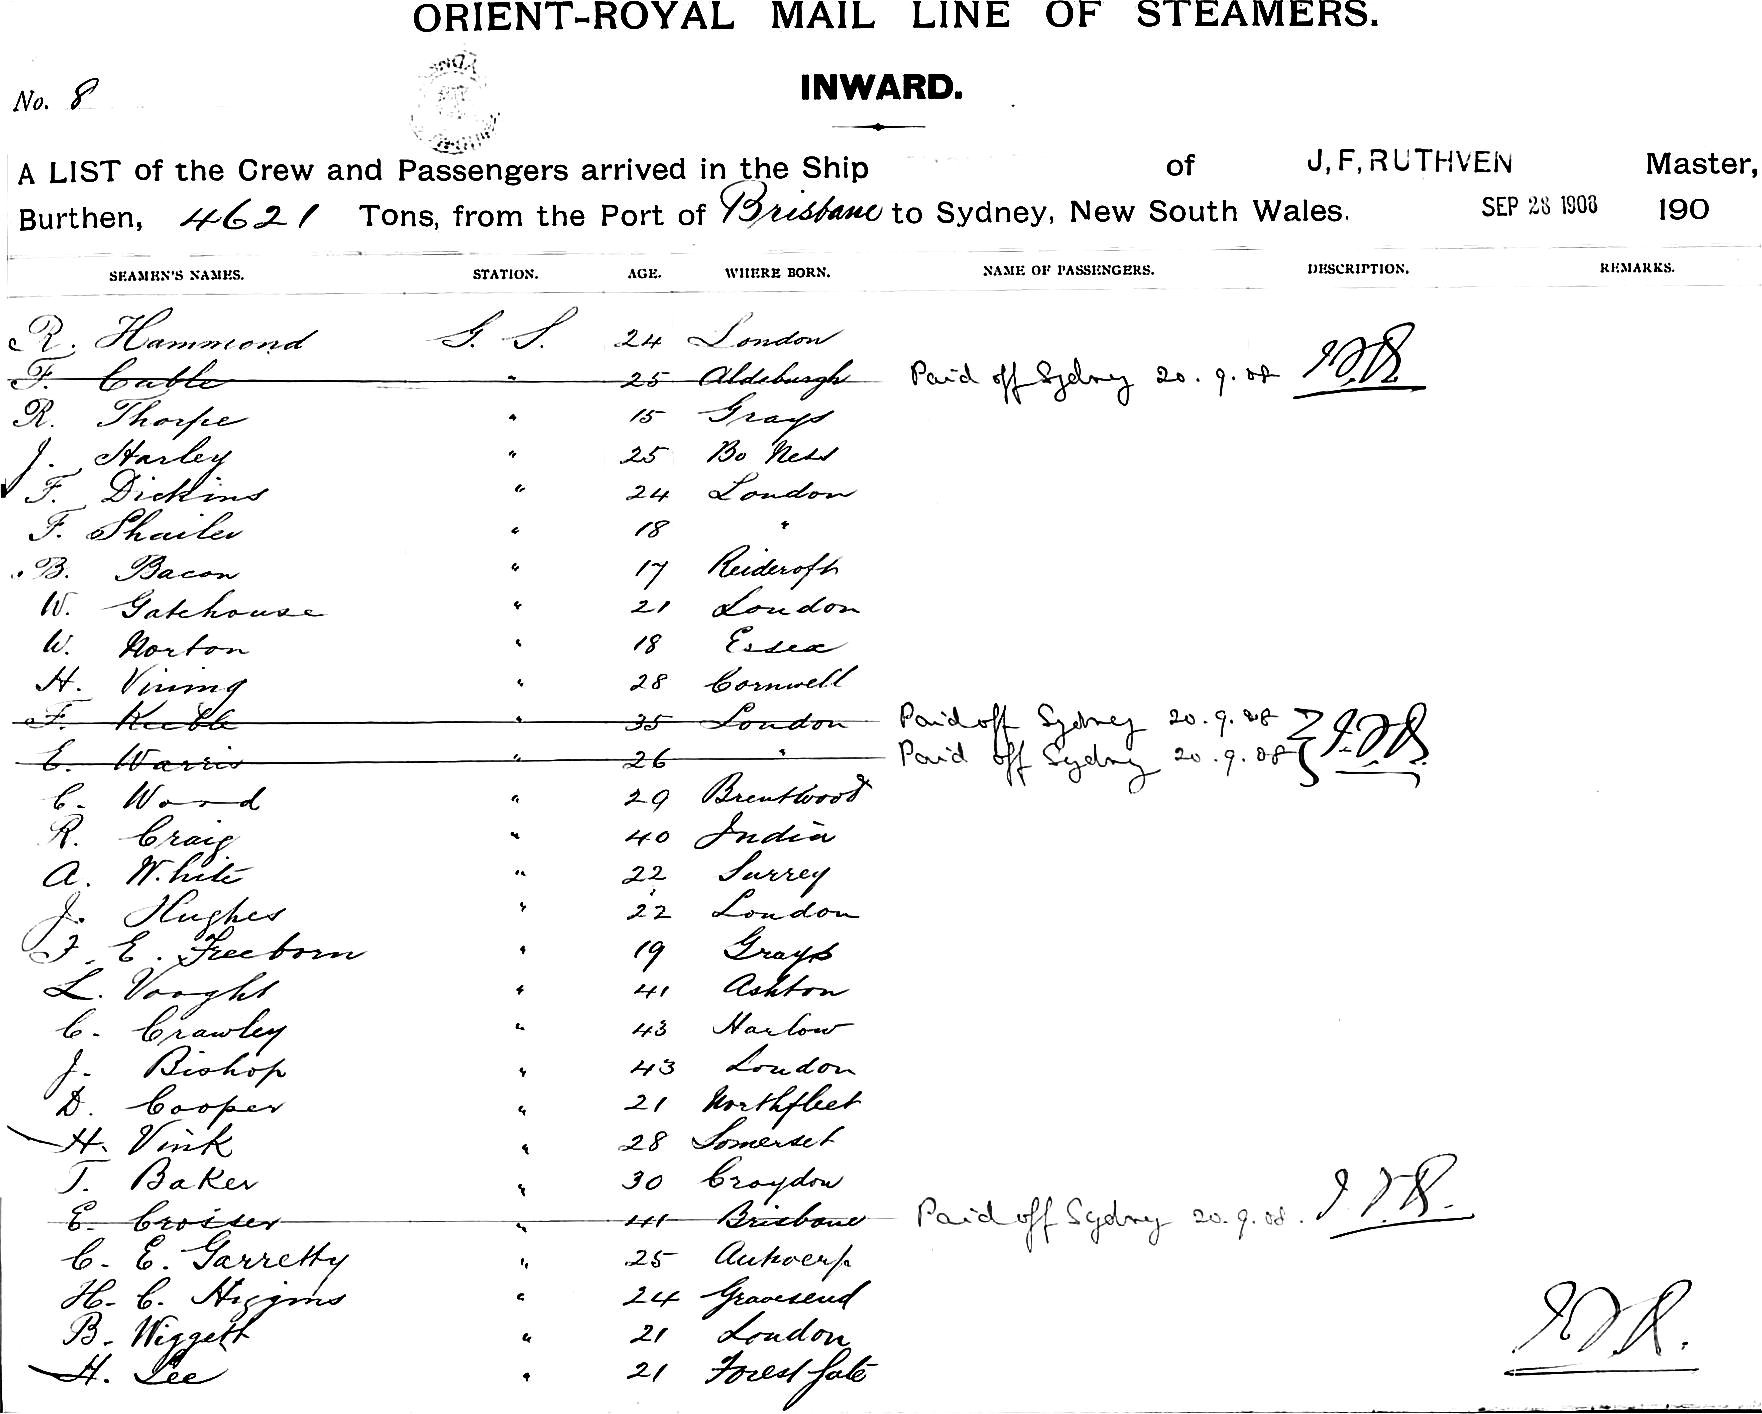 ORIENT-ROYAL MAIL LINE OF STEAMERS.
No. 8
INWARD.
A LIST of the Crew and Passengers arrived in the Ship of J, F, RUTHVEN Master,
Burthen, 4621 Tons, from the Port of Brisbane to Sydney, New South Wales. SEP 28 1908 190
SEAMEN'S NAMES. STATION. AGE. WHERE BORN. NAME OF PASSENGERS. DESCRIPTION. REMARKS.
R. Hammond G. S. 24 London
F. Cable " 25 Aldeburgh Paid off Sydney 20.9.08 J.F.R.
R. Thorpe " 15 Grays
J. Harley " 25 Bo Ness
F. Dickins " 24 London
F. Shailer " 18 "
B. Bacon " 17
W. Gatehouse " 21 London
W. Norton " 18 Essex
H. Vining " 28 Cornwell
F. Keeble " 35 London Paid off Sydney 20.9.08
E. Warris " 26 " Paid off Sydney 20.9.08 J.F.R.
C. Wood " 29 Brentwood
R. Craig " 40 India
A. White " 22 Surrey
J. Hughes " 22 London
F. E. Freeborn " 19 Grays
L. Vooght " 41 Ashton
C. Crawley " 43 Harlow
J. Bishop " 43 London
D. Cooper " 21 Northfleet
H. Vink " 28 Somerset
T. Baker " 30 Croydon
E. Crosser " 41 Brisbane Paid off Sydney 20.9.08. J.F.R.
C. E. Garretty " 25 Antwerp
H. C. Higgins " 24 Gravesend
B. Wiggett " 21 London J.F.R.
H. Lee " 21 Forest Gate